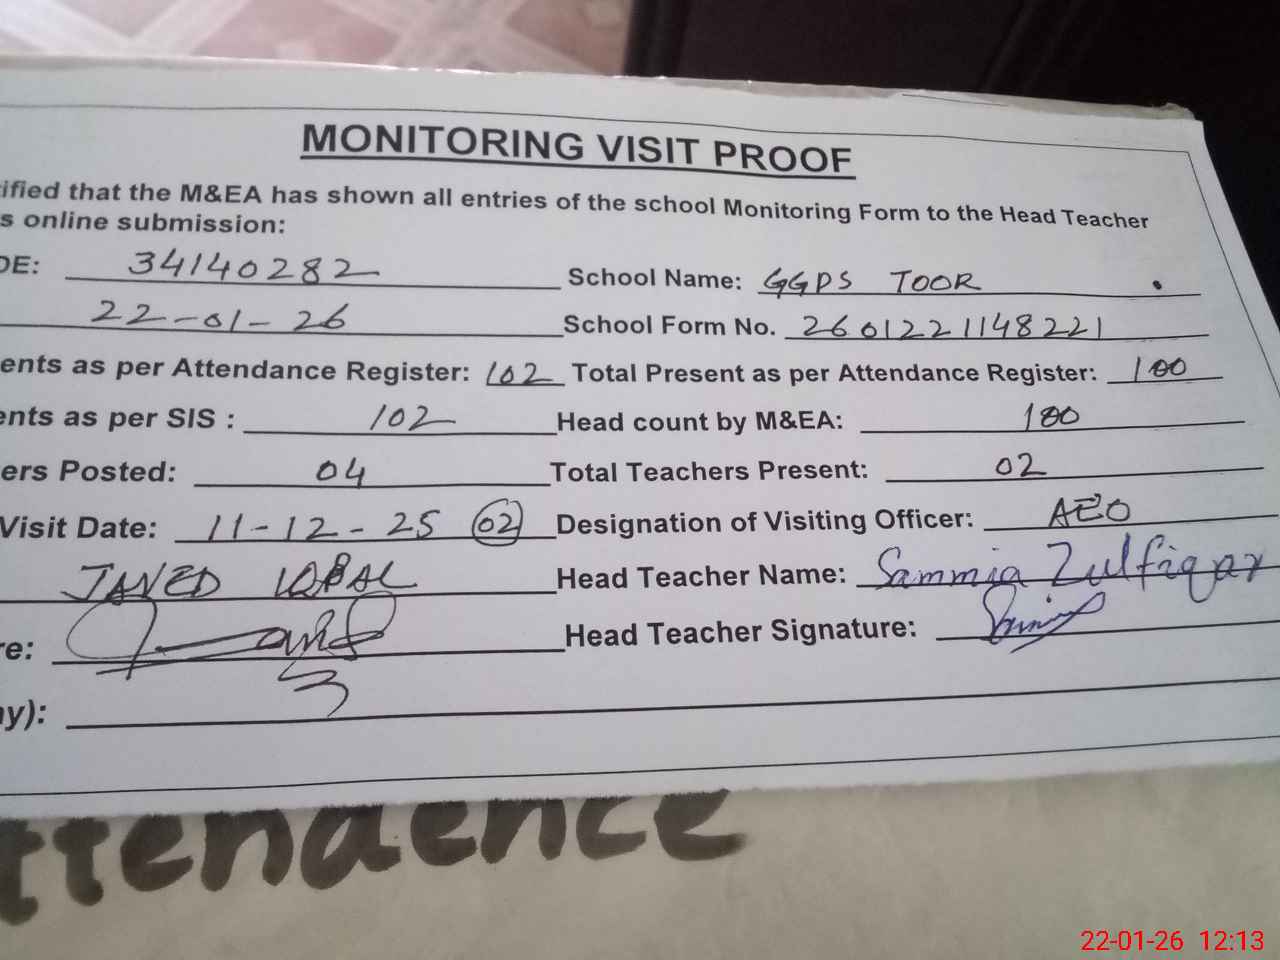 MONITORING VISIT PROOF
ified that the M&EA has shown all entries of the school Monitoring Form to the Head Teacher
s online submission:
DE: 34140282 School Name: GGPS TOOR
22-01-26 School Form No. 2601221148221
ents as per Attendance Register: 102 Total Present as per Attendance Register: 100
ents as per SIS : 102 Head count by M&EA: 100
ers Posted: 04 Total Teachers Present: 02
Visit Date: 11-12-25 02 Designation of Visiting Officer: AEO
JAVED IQBAL Head Teacher Name: Sammia Zulfiqar
re: Head Teacher Signature:
y):
ttendence
22-01-26 12:13